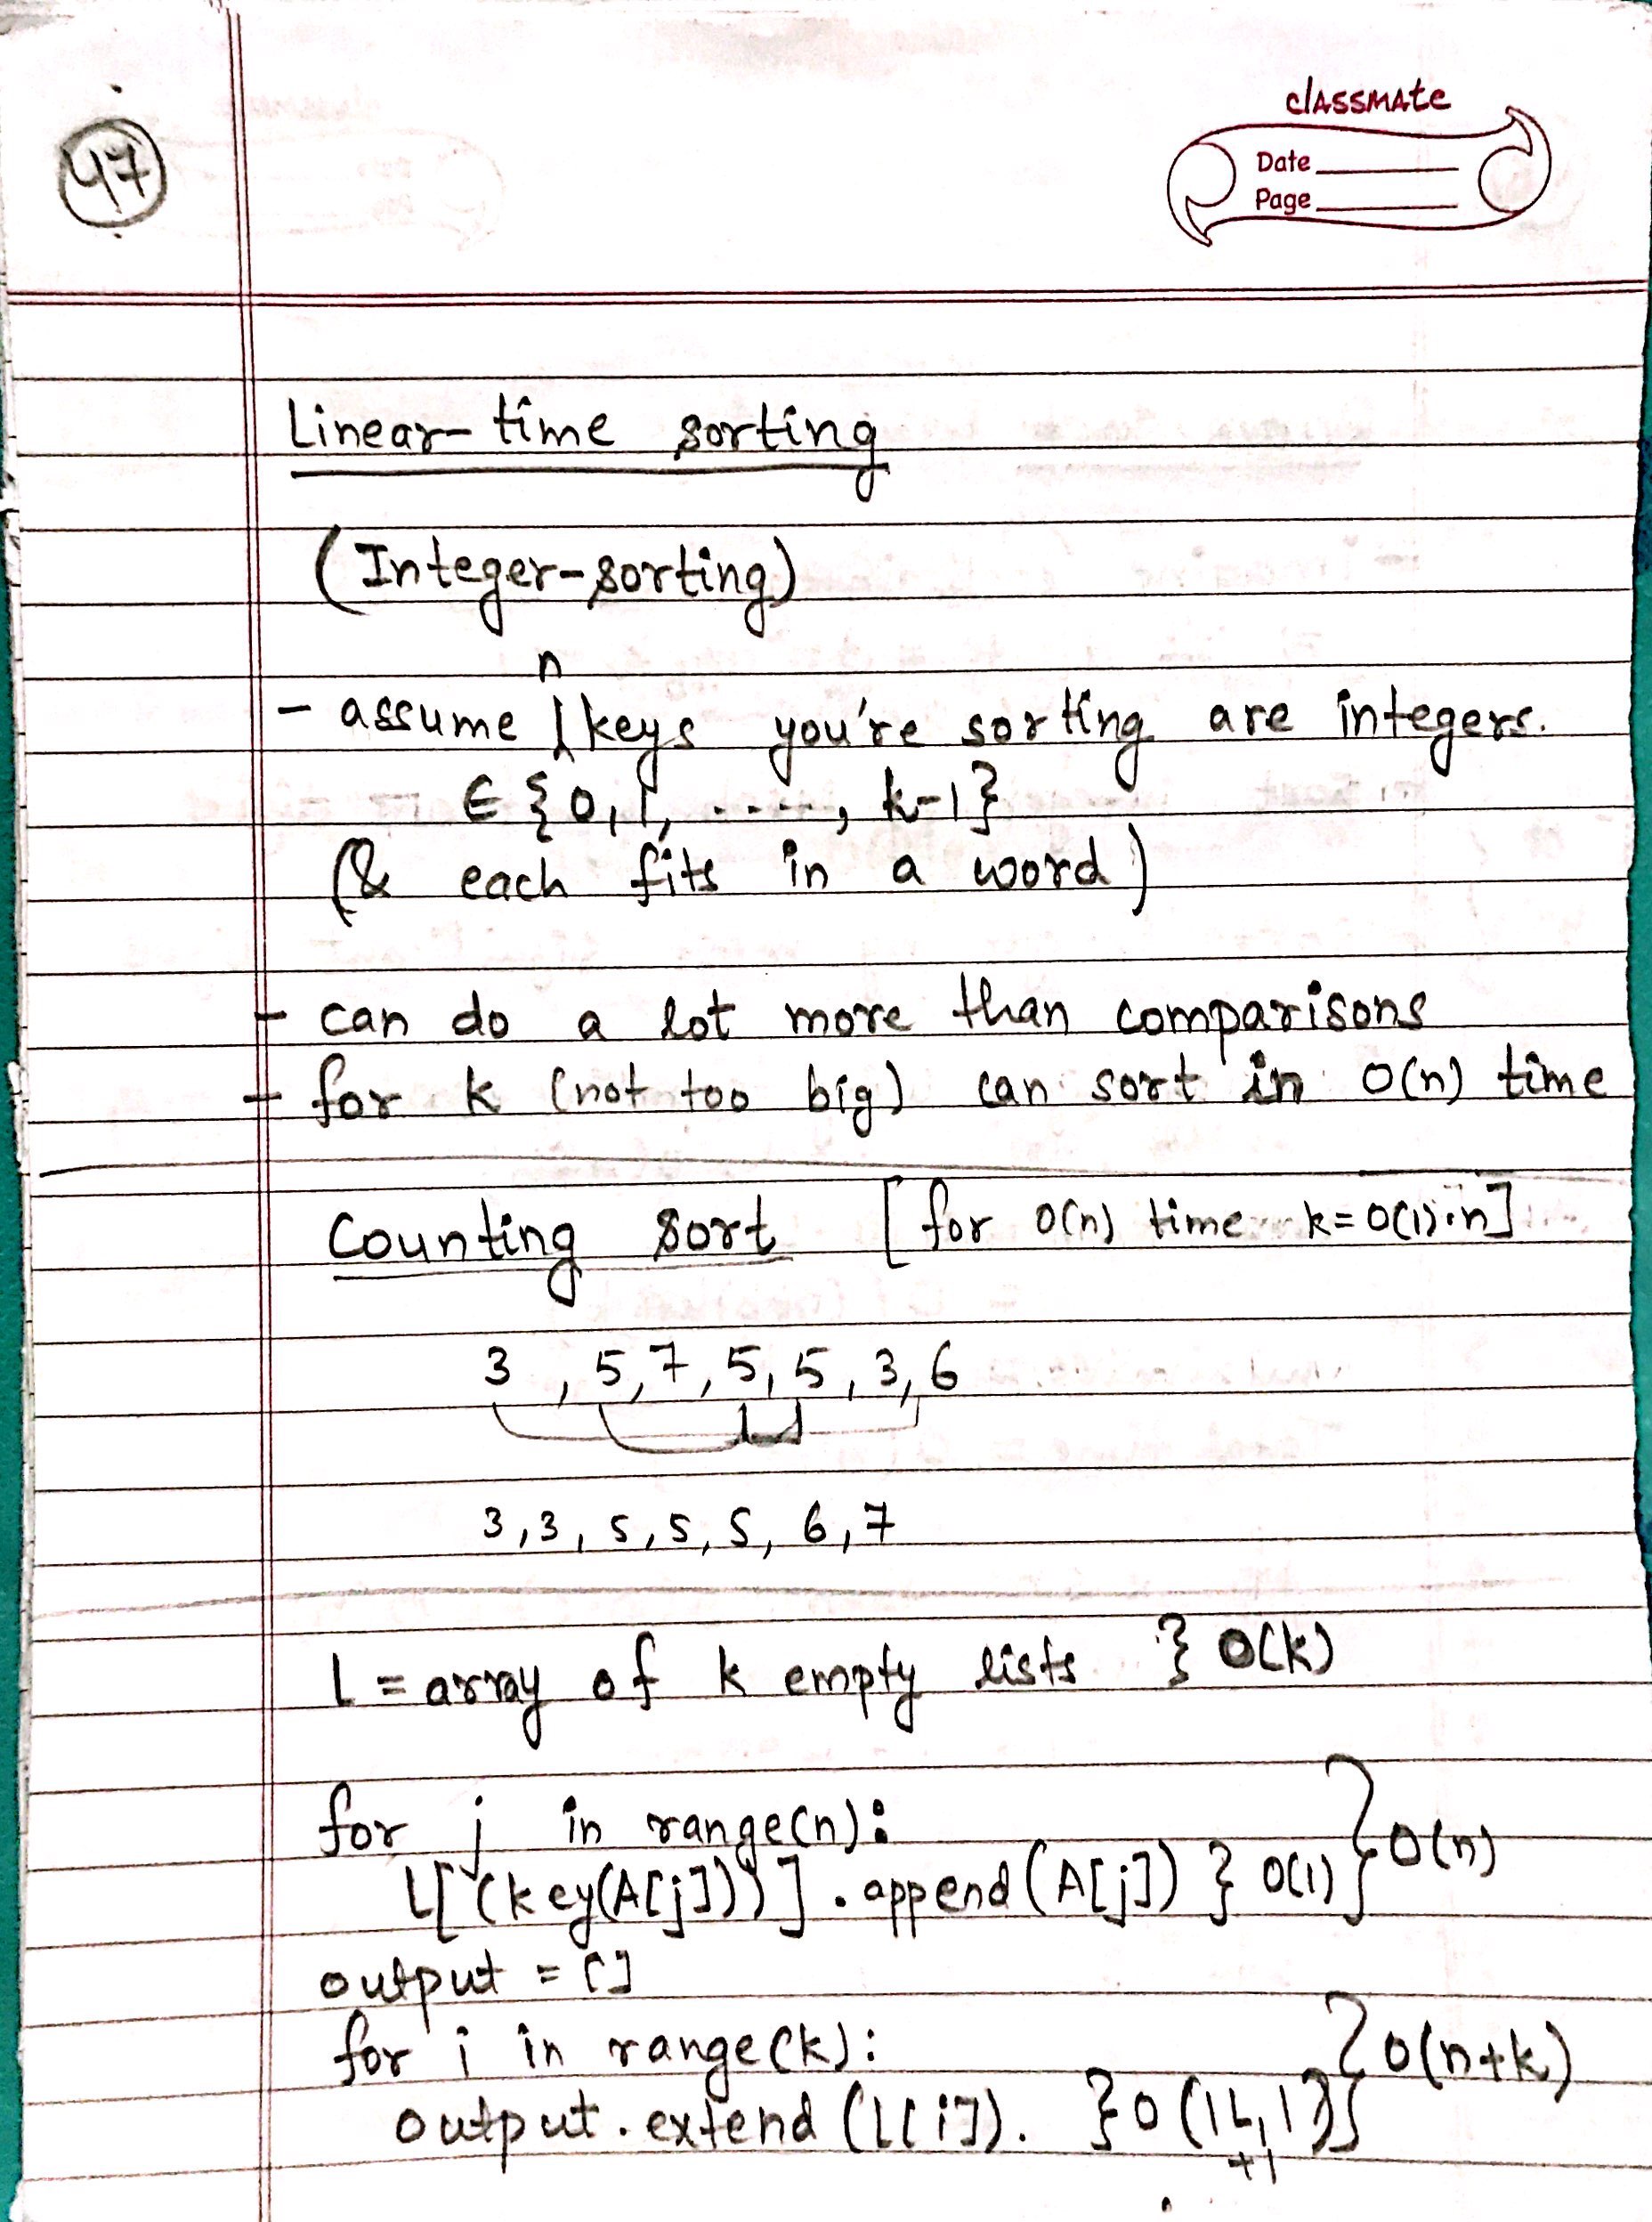 47
classmate
Date
Page
Linear-time sorting
(Integer-sorting)
n
- assume keys you're sorting are integers.
∈ {0,1, -----, k-1}
(& each fits in a word)
- can do a lot more than comparisons
- for k (not too big) can sort in O(n) time
Counting sort [for O(n) time k=O(1)·n]
3, 5, 7, 5, 5, 3, 6
3, 3, 5, 5, 5, 6, 7
L = array of k empty lists } O(k)
for j in range(n):
L[(key(A[j]))].append(A[j]) } O(1) } O(n)
output = []
for i in range(k): } O(n+k)
output.extend(L[i]). } O(|Li|)
+1